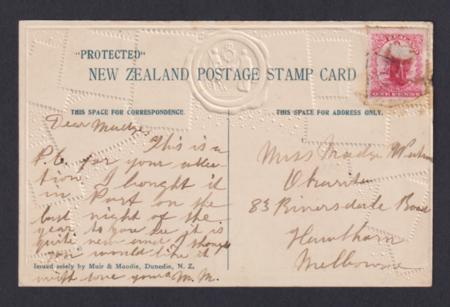 "PROTECTED"
NEW ZEALAND POSTAGE STAMP CARD
THIS SPACE FOR CORRESPONDENCE.
THIS SPACE FOR ADDRESS ONLY.
Dear Madge.
This is a
P.C. for your collec
tion I bought it
in Port on the
last night of the
year to you see it is
quite new and I though
you would like it
with love yours M.M.
Miss Madge
83 Riversdale Road
Hawthorn
Melbourne
Issued solely by Muir & Moodie, Dunedin, N. Z.
ONE PENNY